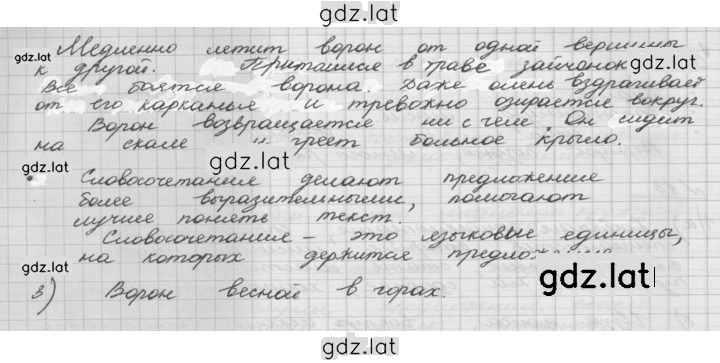 gdz.lat
Медленно летит ворон от одной вершины
gdz.lat
к другой. Притаился в траве зайчонок
gdz.lat
Все боятся ворона. Даже олень вздрагивает
от его карканья и тревожно озирается вокруг.
Ворон возвращается ни с чем. Он сидит
на скале и греет больное крыло.
gdz.lat
gdz.lat
Словосочетания делают предложение
более выразительными, помогают
лучше понять текст.
Словосочетания – это языковые единицы,
на которых держится
gdz.lat
gdz.lat
3) Ворон весной в горах.
gdz.lat